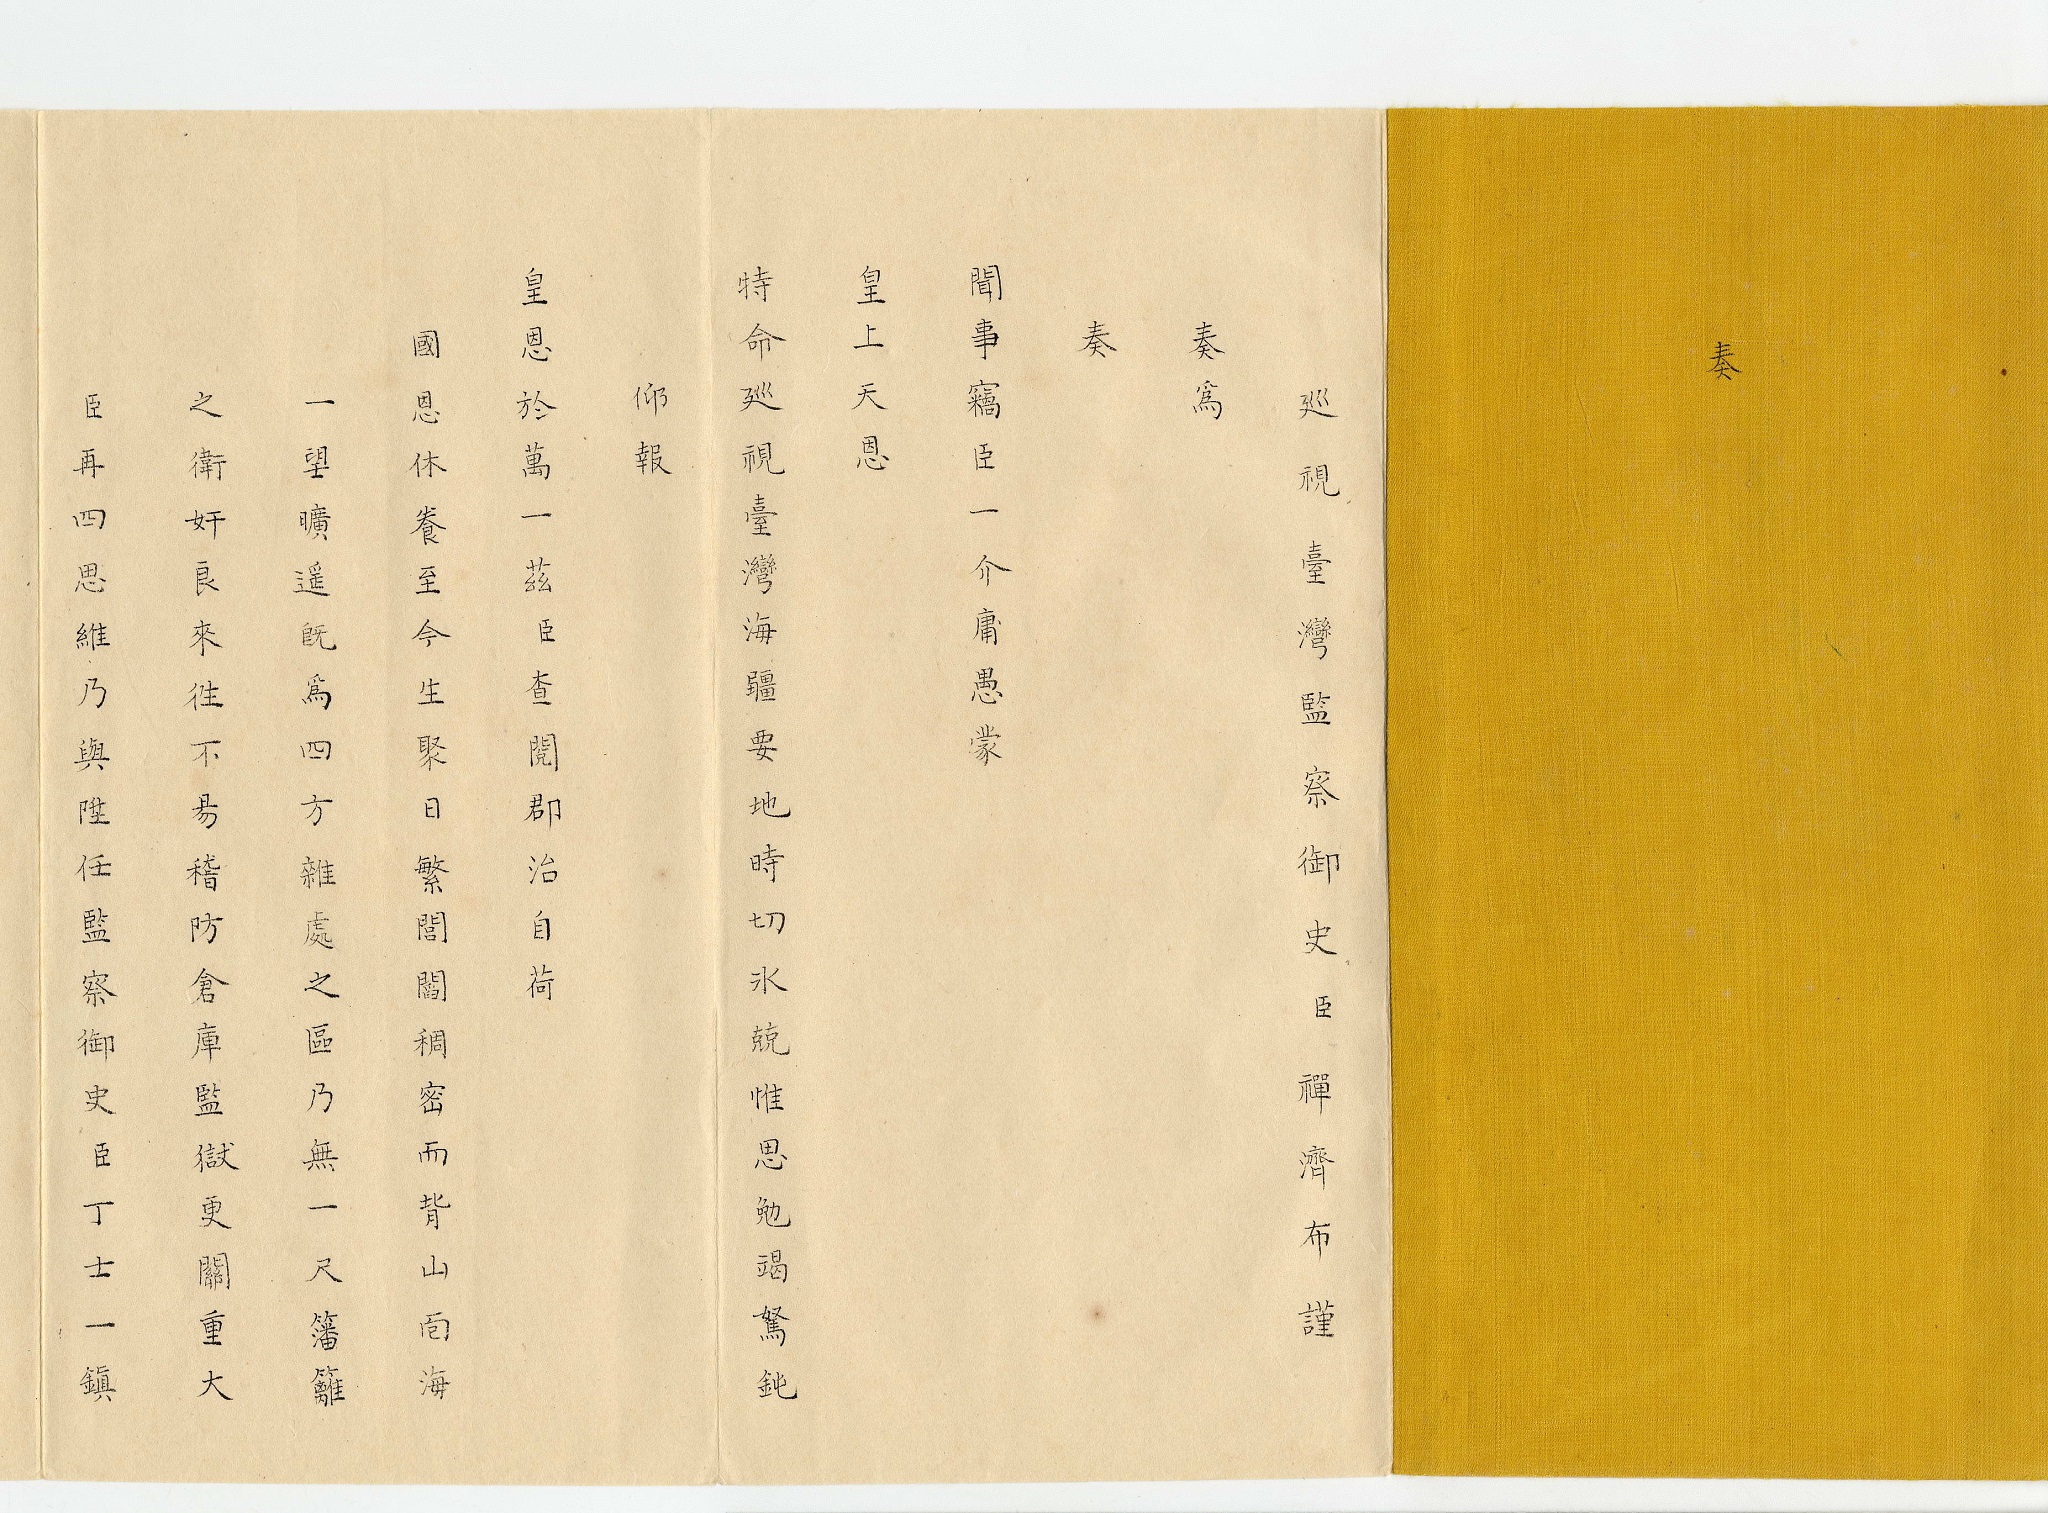 奏
巡視臺灣監察御史臣禪濟布謹
奏爲
奏
聞事竊臣一介庸愚蒙
皇上天恩
特命巡視臺灣海疆要地時切氷兢惟思勉竭駑鈍
仰報
皇恩於萬一茲臣查閱郡治自荷
國恩休養至今生聚日繁閭閻稠密而背山面海
一望曠遥既爲四方雜處之區乃無一尺籓籬
之衛奸良來徃不易稽防倉庫監獄更關重大
臣再四思維乃與陞任監察御史臣丁士一鎮